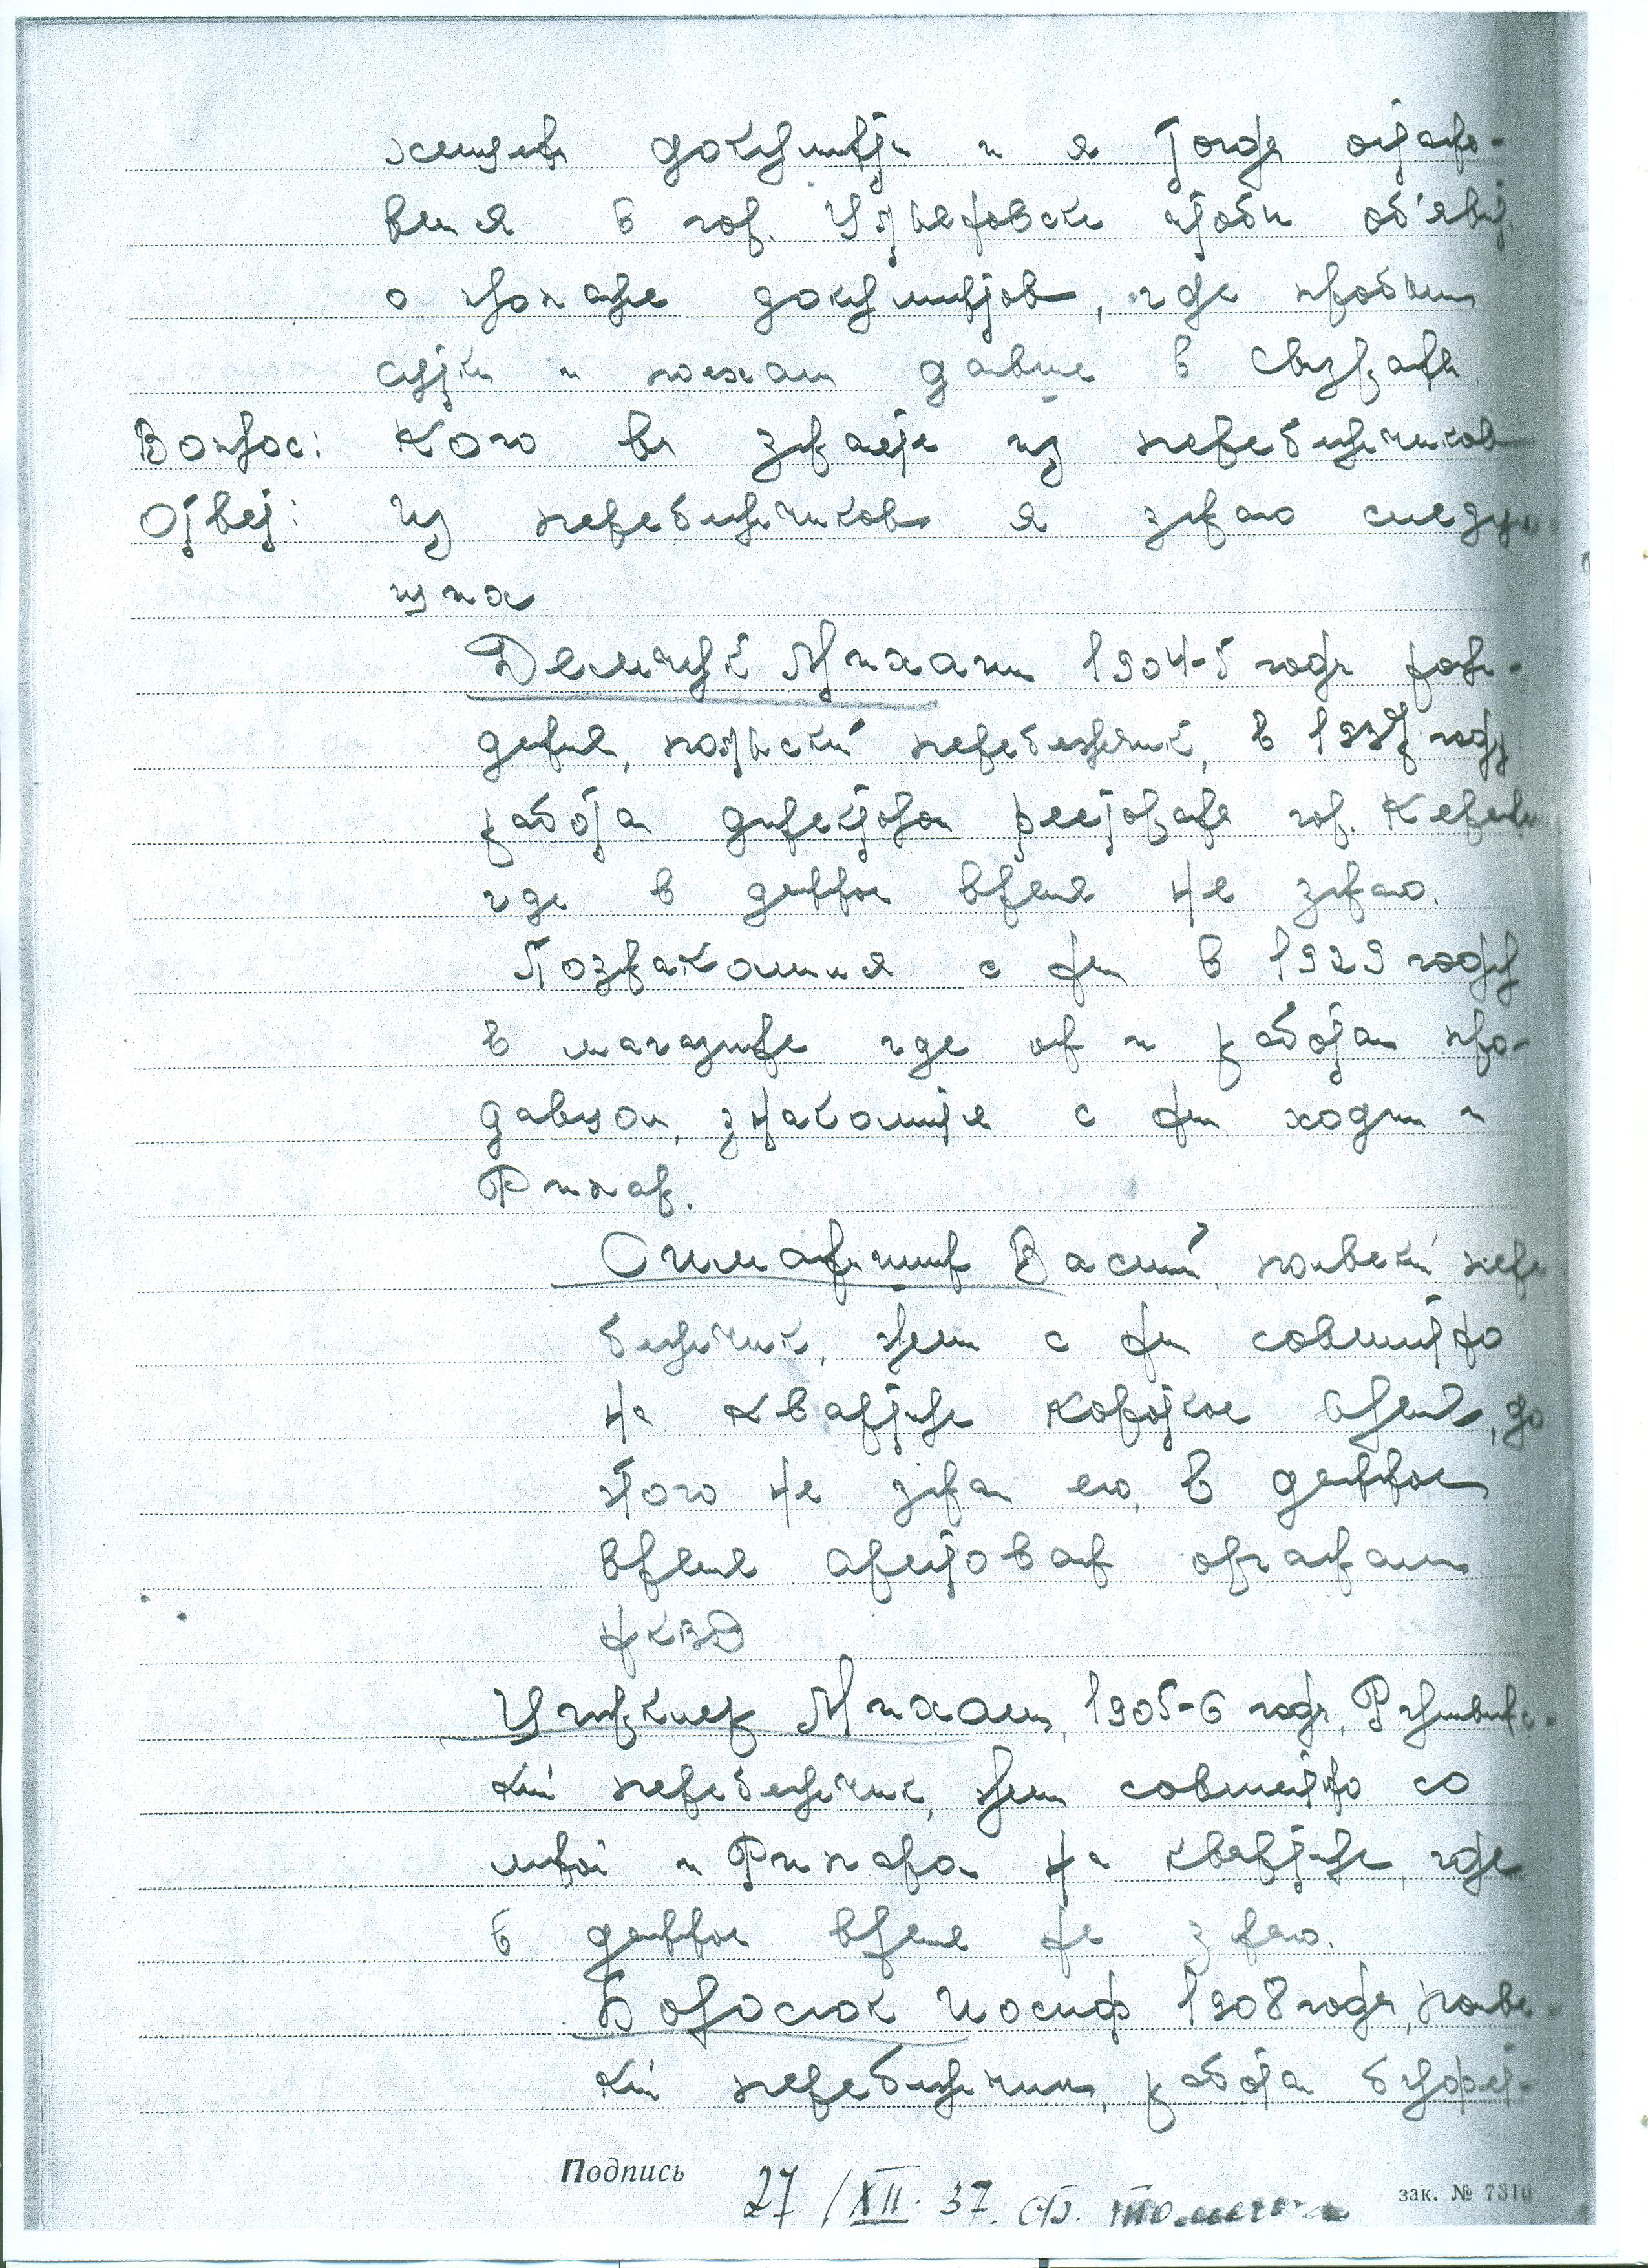 документы и я тогда остано-
вился в гор. Ульяновске чтобы об'явит.
о пропаже документов, где пробыл
сутки и поехал дальше в Сызрань.
Вопрос: Кого вы знаете из перебещиков
Ответ: Из перебещиков я знаю следую
щих
Демчук Михаил 1904-5 года рож-
дения, польский перебещик, в 1937 году
работал директором ресторана гор.
где в данное время не знаю.
Познакомился с ним в 1929 году
в магазине где он и работал про-
давцом, знакомится с ним ходил и
Рихар.
Василий, польский пере
бещик, жил с ним совместно
на квартире короткое время, до
этого не знал его, в данное
время арестован органами
НКВД
Михаил, 1905-6 года, Румынс-
кий перебещик, жил совместно со
мной и Рихаром на квартире, где
в данное время не знаю.
Боросюк Иосиф 1908 года, польс-
кий перебещик, работал буфет-
Подпись 27/XII. 37.
зак. № 7310